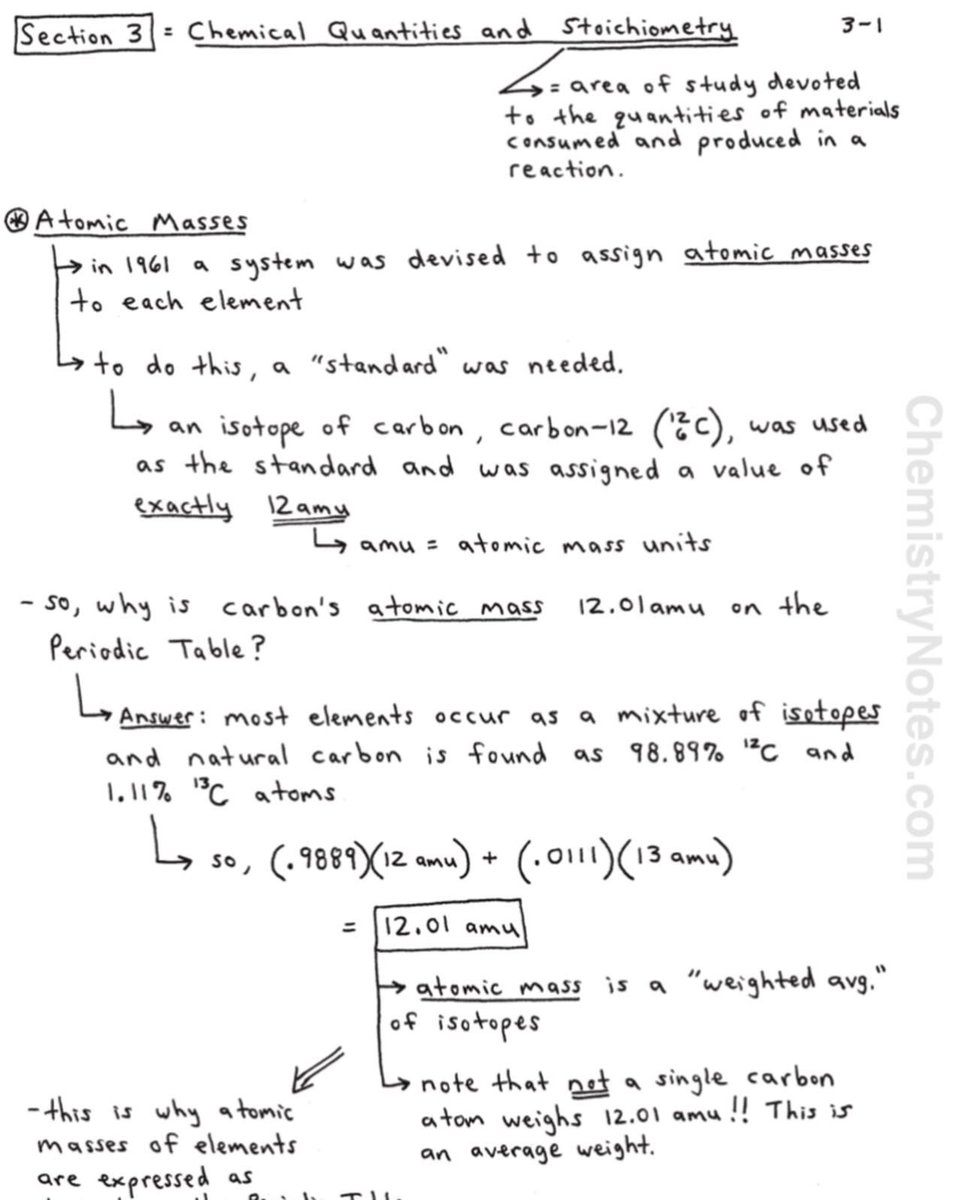 Section 3 = Chemical Quantities and Stoichiometry 3-1
= area of study devoted
to the quantities of materials
consumed and produced in a
reaction.
⊛ Atomic Masses
→ in 1961 a system was devised to assign atomic masses
to each element
→ to do this, a "standard" was needed.
→ an isotope of carbon, carbon-12 (¹²₆C), was used
as the standard and was assigned a value of
exactly 12 amu
→ amu = atomic mass units
- so, why is carbon's atomic mass 12.01 amu on the
Periodic Table?
→ Answer: most elements occur as a mixture of isotopes
and natural carbon is found as 98.89% ¹²C and
1.11% ¹³C atoms
→ so, (.9889)(12 amu) + (.0111)(13 amu)
= 12.01 amu
→ atomic mass is a "weighted avg."
of isotopes
→ note that not a single carbon
atom weighs 12.01 amu!! This is
an average weight.
- this is why atomic
masses of elements
are expressed as
ChemistryNotes.com